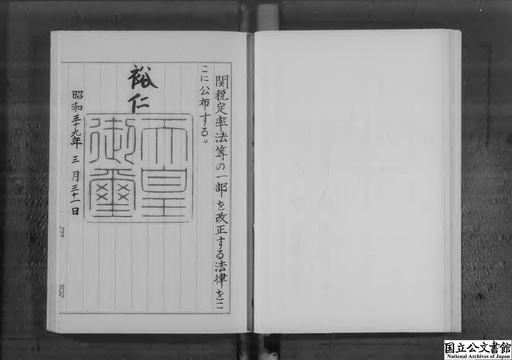 関税定率法等の一部を改正する法律をこ
こに公布する。
裕仁
天皇
御璽
昭和三十九年三月三十一日
国立公文書館
National Archives of Japan